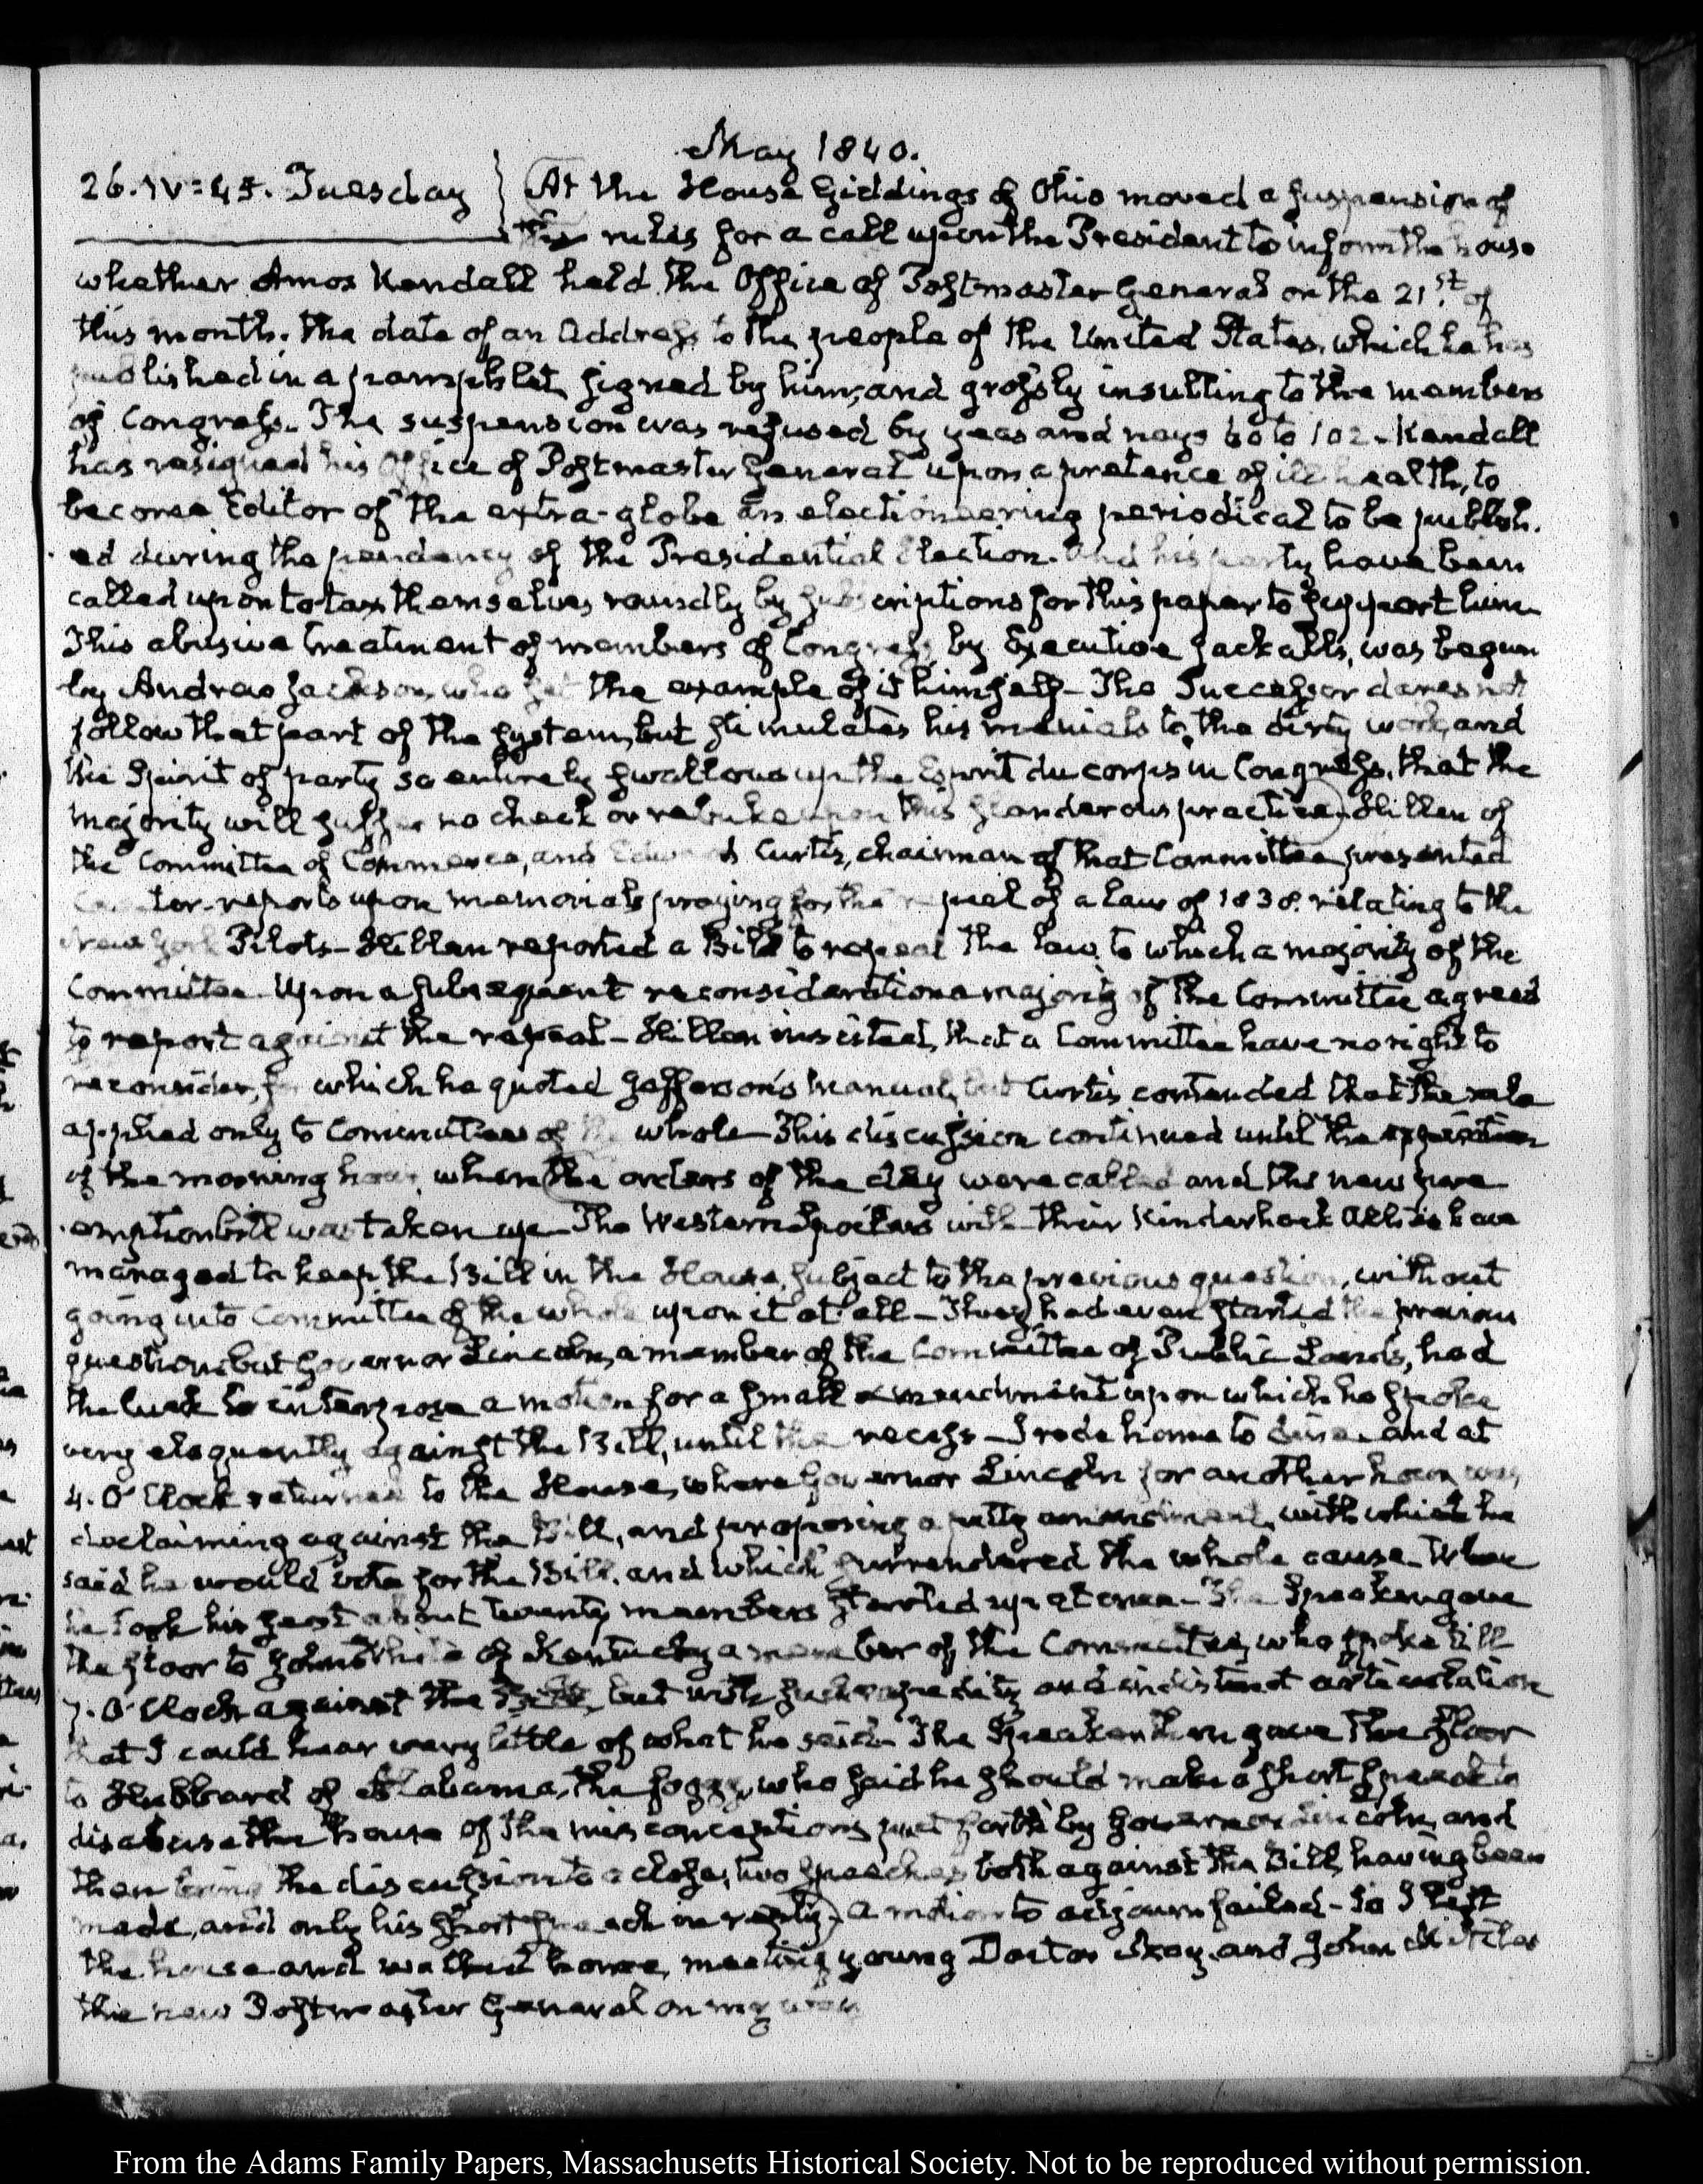 May 1840.
26. IV:45. Tuesday } At the House Giddings of Ohio moved a suspension of
the rules for a call upon the President to inform the house
whether Amos Kendall held the Office of Postmaster General on the 21st. of
this month. the date of an Address to the people of the United States, which he has
published in a pamphlet, signed by him, and grossly insulting to the members
of Congress. The suspension was refused by yeas and nays 60 to 102 - Kendall
has resigned his Office of Postmaster General upon a pretence of ill health, to
become Editor of the extra-globe an electioneering periodical to be publish-
ed during the pendency of the Presidential Election. And his party have been
called upon to tax themselves roundly by subscriptions for this paper to support him
This abusive treatment of members of Congress, by Executive jackalls, was begun
by Andrew Jackson, who set the example of it himself - The Successor dares not
follow that part of the system, but stimulates his menials to the dirty work, and
the Spirit of party so entirely swallows up the Esprit du corps in Congress, that the
majority will suffer no check or rebuke upon this slanderous practice - Hillen of
the Committee of Commerce, and Edward Curtis, chairman of that Committee presented
Counter-reports upon memorials praying for the repeal of a law of 1838. relating to the
New York Pilots - Hillen reported a Bill to repeal the law, to which a majority of the
Committee Upon a subsequent reconsideration a majority of the Committee agreed
to report against the repeal - Hillen insisted, that a Committee have no right to
reconsider, for which he quoted Jefferson's Manual, but Curtis contended that the rule
applied only to Committees of the whole - This discussion continued until the expiration
of the morning hour, when the orders of the day were called and the new pre
emption bill was taken up - The Western Spoilers with their Kinderhook Allies have
managed to keep the Bill in the House, subject to the previous question, without
going into Committee of the whole upon it at all - They had even started the previous
question, but Governor Lincoln, a member of the Committee of Public Lands, had
the luck to interpose a motion for a small amendment upon which he spoke
very eloquently against the Bill, until the recess - I rode home to dine - and at
4. O'Clock returned to the House, where Governor Lincoln for another hour was
declaiming against the Bill, and proposing a petty amendment, with which he
said he would vote for the Bill. and which surrendered the whole cause - When
he took his seat about twenty members started up at once - The Speaker gave
the floor to John White of Kentucky a member of the Committee, who spoke till
7. O'Clock against the Bill, but with such rapidity and indistinct articulation
that I could hear very little of what he said - The Speaker then gave the floor
to Hubbard of Alabama, the foggy, who said he should make a short speech to
disabuse the house of the misconceptions put forth by Governor Lincoln, and
then bring the discussion to a close, two speeches both against the Bill, having been
made, and only his short speech in reply - a motion to adjourn failed - So I left
the house and walked home, meeting young Doctor and John M. Niles
the new Postmaster General on my way
From the Adams Family Papers, Massachusetts Historical Society. Not to be reproduced without permission.